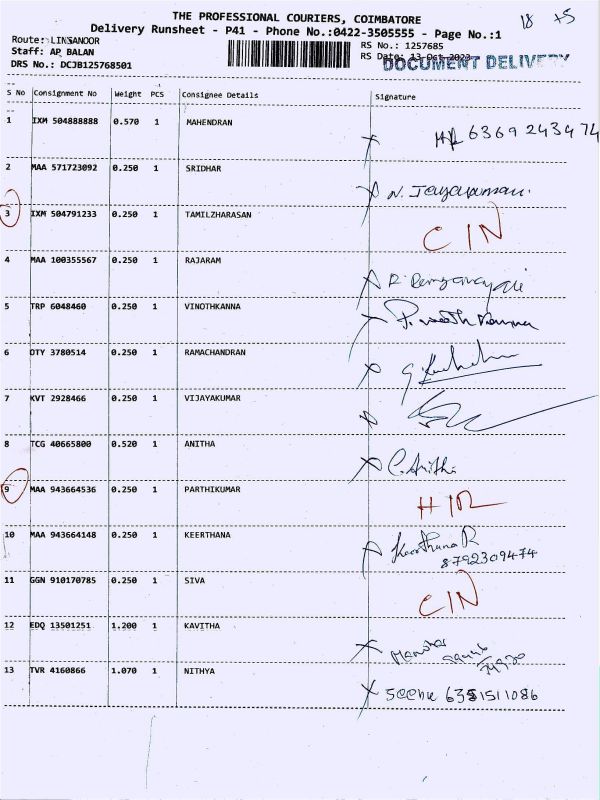 THE PROFESSIONAL COURIERS, COIMBATORE
18 +5
Delivery Runsheet - P41 - Phone No.:0422-3505555 - Page No.:1
Route: LINSANOOR
RS No.: 1257685
Staff: AP BALAN
RS Date: 13 Oct 2023
DRS No.: DCJB125768501
DOCUMENT DELIVERY
S No Consignment No Weight PCS Consignee Details Signature
1 IXM 504888888 0.570 1 MAHENDRAN 6369243474
2 MAA 571723092 0.250 1 SRIDHAR N. Jayaraman.
3 IXM 504791233 0.250 1 TAMILZHARASAN CIN
4 MAA 100355567 0.250 1 RAJARAM
5 TRP 6048460 0.250 1 VINOTHKANNA
6 OTY 3780514 0.250 1 RAMACHANDRAN
7 KVT 2928466 0.250 1 VIJAYAKUMAR
8 TCG 40665800 0.520 1 ANITHA C. Anitha
9 MAA 943664536 0.250 1 PARTHIKUMAR
10 MAA 943664148 0.250 1 KEERTHANA Keerthana R
8792309474
11 GGN 910170785 0.250 1 SIVA CIN
12 EDQ 13501251 1.200 1 KAVITHA Manohar
13 TVR 4160866 1.070 1 NITHYA Seenu 6351511086